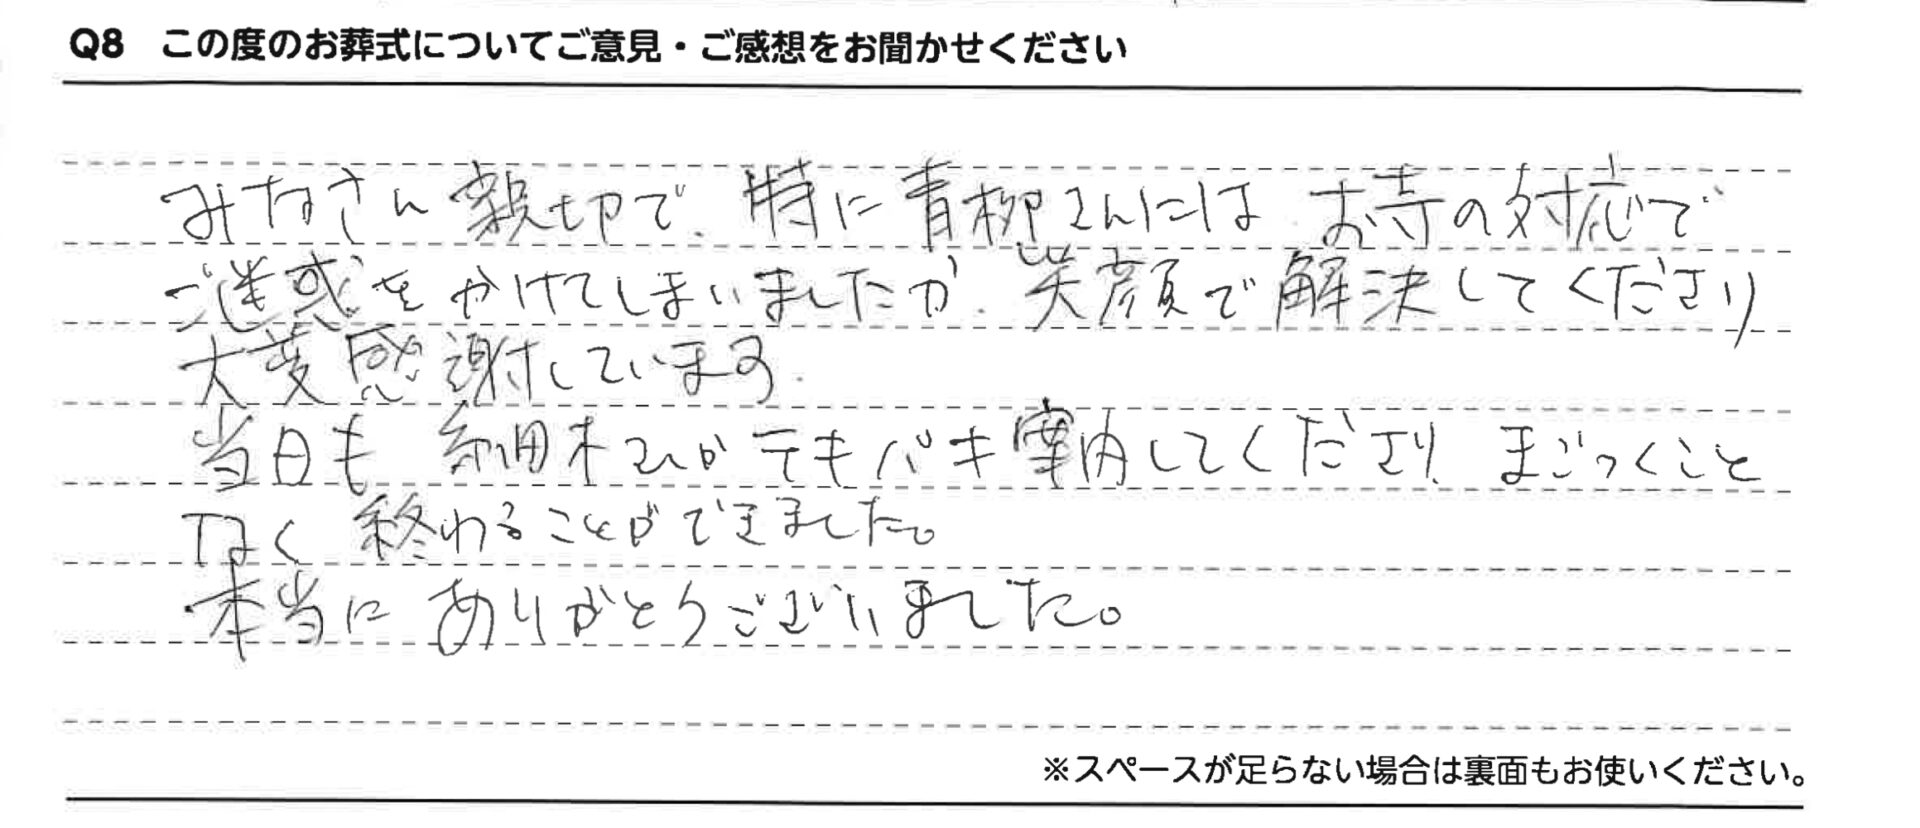 Q8 この度のお葬式についてご意見・ご感想をお聞かせください
みなさん親切で、特に青柳さんには、お寺の対応で
ご迷惑をかけてしまいましたが、笑顔で解決してくださり
大変感謝しています。
当日も細木さんがテキパキ案内してくださり、まごつくこと
なく終わることができました。
本当にありがとうございました。
※スペースが足らない場合は裏面もお使いください。